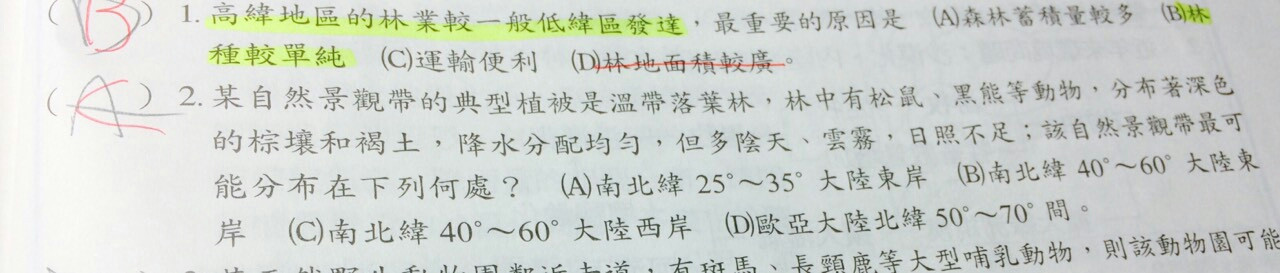 (B) 1. 高緯地區的林業較一般低緯區發達，最重要的原因是 (A)森林蓄積量較多 (B)林
種較單純 (C)運輸便利 (D)林地面積較廣。
(A) 2. 某自然景觀帶的典型植被是溫帶落葉林，林中有松鼠、黑熊等動物，分布著深色
的棕壤和褐土，降水分配均勻，但多陰天、雲霧，日照不足；該自然景觀帶最可
能分布在下列何處？ (A)南北緯 25°～35° 大陸東岸 (B)南北緯 40°～60° 大陸東
岸 (C)南北緯 40°～60° 大陸西岸 (D)歐亞大陸北緯 50°～70° 間。
有斑馬、長頸鹿等大型哺乳動物，則該動物園可能